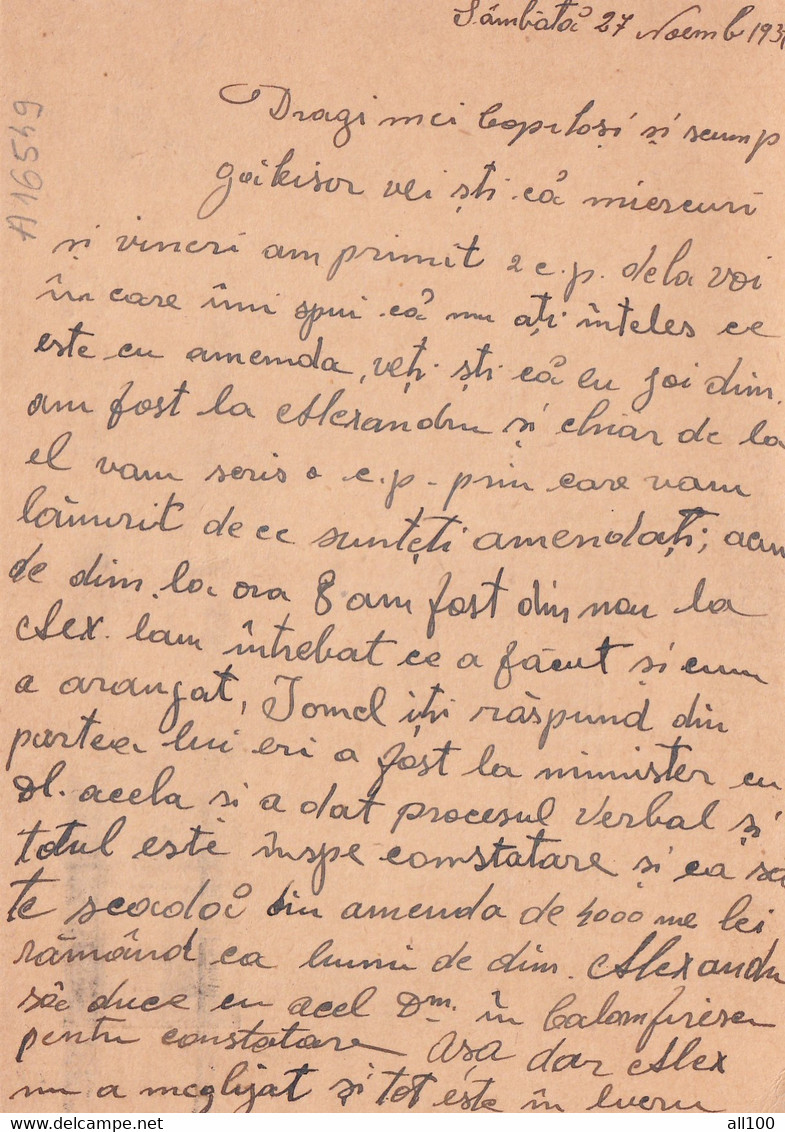 Sâmbătă 27 Noemb 193
Dragi mei Copiloși și scump
vei ști că miercuri
și vineri am primit 2 c.p. dela voi
în care îmi spui că nu ați înteles ce
este cu amenda, veți ști că eu joi dim.
am fost la Alexandru și chiar de la
el vam scris o c.p. prin care vam
lămurit de ce sunteți amendați; acum
de dim. la ora 8 am fost din nou la
Alex. lam întrebat ce a făcut și cum
a aranjat, Ionel iți răspund din
partea lui eri a fost la minister cu
Dl. acela si a dat procesul Verbal și
totul este înspe constatare și ca să
te scadă din amenda de 4000 me lei
rămând ca luni de dim. Alexandru
să duce cu acel Dm. în
pentru constatare Așa dar Alex
nu a neglijat și tot este în lucru
A16549
all100